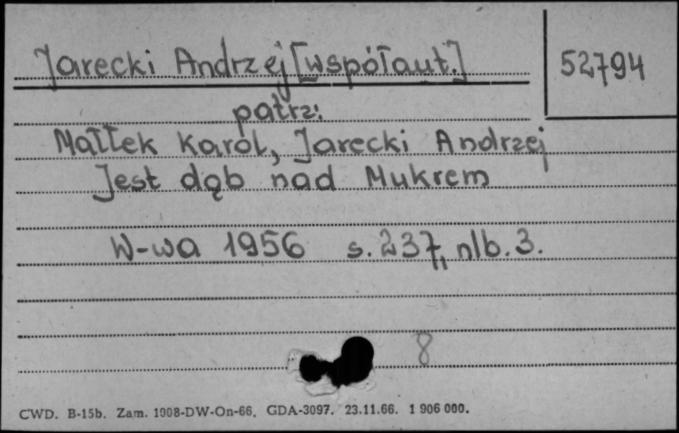 Jarecki Andrzej [współaut.]
52794
patrz:
Małłek Karol, Jarecki Andrzej
Jest dąb nad Mukrem
W-wa 1956 s. 237, nlb. 3.
8
CWD. B-15b. Zam. 1908-DW-On-66. GDA-3097. 23.11.66. 1 906 000.